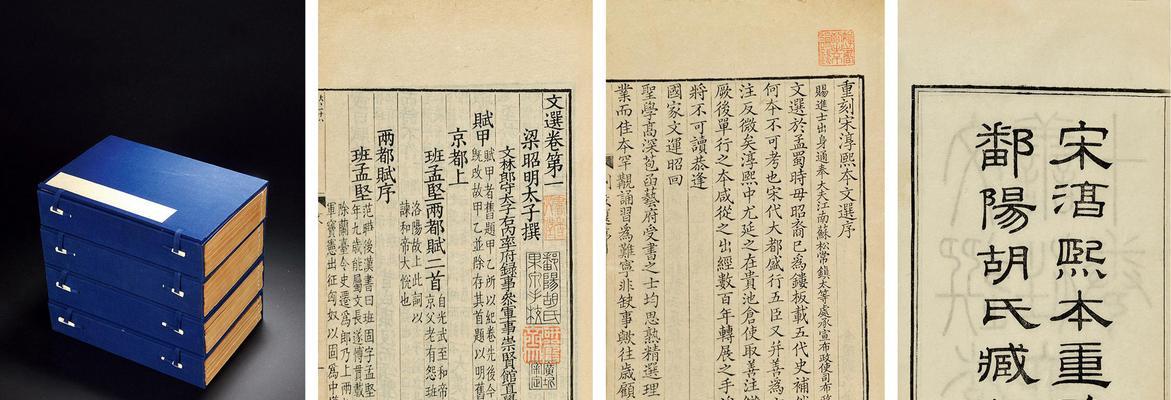 文選卷第一
梁昭明太子撰
文林郎守太子右內率府錄事參軍事崇賢館直
賦甲
賦甲者舊題甲乙所以紀卷先後今
既改故甲乙並除存其首題以明舊
京都上
班孟堅兩都賦二首
自光武至和帝
京父老有怨班
洛陽故上此詞以
諫和帝大悅也
兩都賦序
班孟堅
范曄後漢書曰班固字孟堅
年九歲能屬文長遂博貫載
除蘭臺令史遷為郎乃上兩
軍竇憲出征匈奴以固為中
鄱陽胡氏
重刻宋淳熙本文選序
賜進士出身通奉大夫江南蘇松常鎮太等處承宣布政使司布政
文選於孟蜀時毋昭裔已為鏤板載五代史補
何夲不可考也宋代大都盛行五臣又并善為
注反微矣淳熙中尤延之在貴池倉使取善注
厥後單行之夲咸從之出經數百年轉展之手
將不可讀恭逢
國家文運昭回
聖學高深苞函藝府受書之士均思熟精選理
業而佳夲罕觀誦習為難寧非缺事歟往歲顧
宋湻熙本重
鄱陽胡氏臧